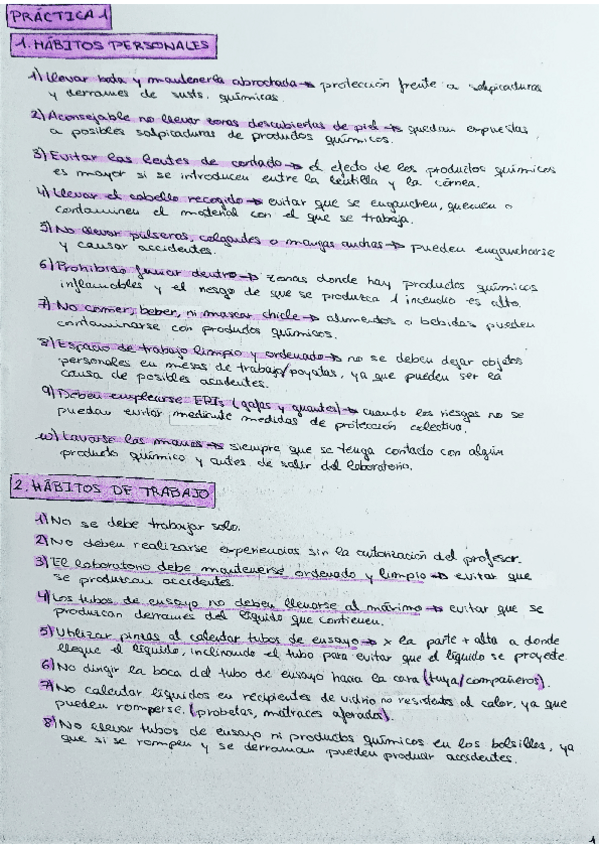 PRÁCTICA 1
1. HÁBITOS PERSONALES
1) Llevar bata y mantenerla abrochada → protección frente a salpicaduras
y derrames de susts. químicas.
2) Aconsejable no llevar zonas descubiertas de piel → quedan expuestas
a posibles salpicaduras de produdos químicos.
3) Evitar las lentes de contacto → el efecto de los productos químicos
es mayor si se introducen entre la lentilla y la córnea.
4) Llevar el cabello recogido → evitar que se enganchen, quemen o
contaminen el material con el que se trabaja.
5) No llevar pulseras, colgantes o mangas anchas → pueden engancharse
y causar accidentes.
6) Prohibido fumar dentro → zonas donde hay productos químicos
inflamables y el riesgo de que se produzca 1 incendio es alto.
7) No comer, beber, ni mascar chicle → alimentos o bebidas pueden
contaminarse con produdos químicos.
8) Espacio de trabajo limpio y ordenado → no se deben dejar objetos
personales en mesas de trabajo/poyatas, ya que pueden ser la
causa de posibles accidentes.
9) Deben emplearse EPIs (gafas y guantes) → cuando los riesgos no se
puedan evitar mediante medidas de protección colectiva.
10) Lavarse las manos → siempre que se tenga contacto con algún
producto químico y antes de salir del laboratorio.
2. HÁBITOS DE TRABAJO
1) No se debe trabajar solo.
2) No deben realizarse experiencias sin la autorización del profesor.
3) El laboratorio debe mantenerse ordenado y limpio → evitar que
se produzcan accidentes.
4) Los tubos de ensayo no deben llenarse al máximo → evitar que se
produzcan derrames del líquido que contienen.
5) Utilizar pinzas al calentar tubos de ensayo → x la parte + alta a donde
llegue el líquido, inclinando el tubo para evitar que el líquido se proyecte
6) No dirigir la boca del tubo de ensayo hacia la cara (tuya/compañeros).
7) No calentar líquidos en recipientes de vidrio no resistentes al calor, ya que
pueden romperse. (probetas, matraces aforados).
8) No llevar tubos de ensayo ni productos químicos en los bolsillos, ya
que si se rompen y se derraman pueden producir accidentes.
1